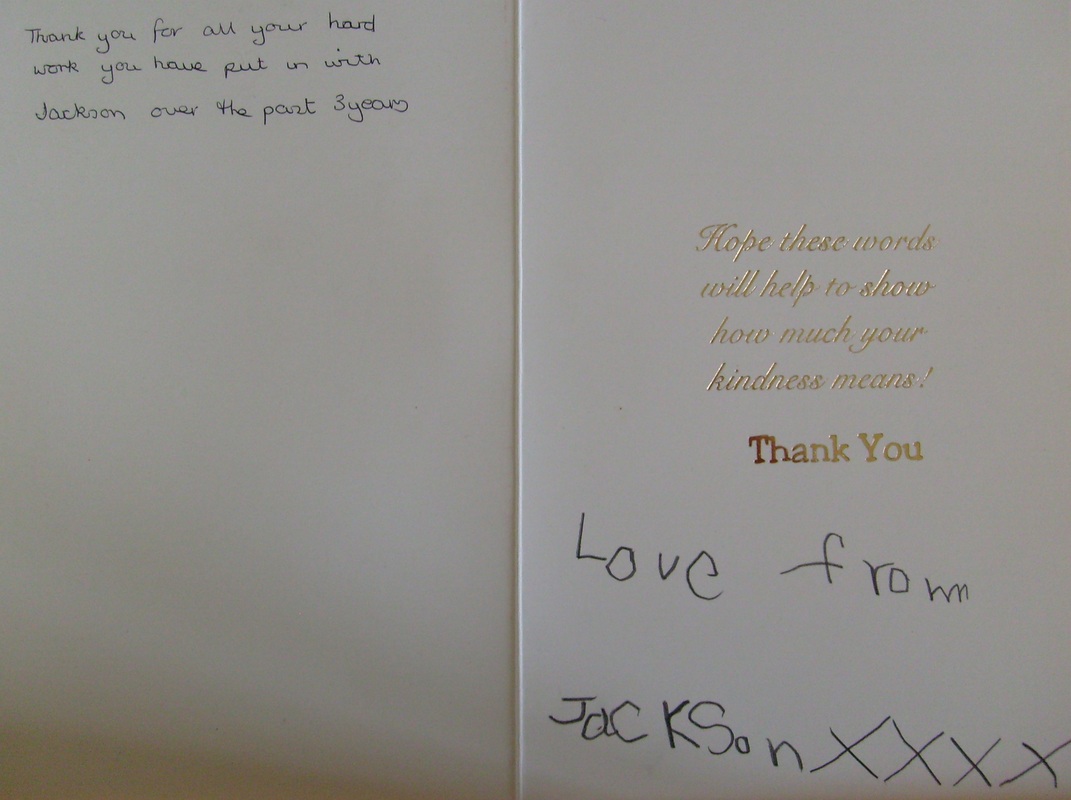 Thank you for all your hard
work you have put in with
Jackson over the past 3years
Hope these words
will help to show
how much your
kindness means!
Thank You
Love from
JacKSon XXXX